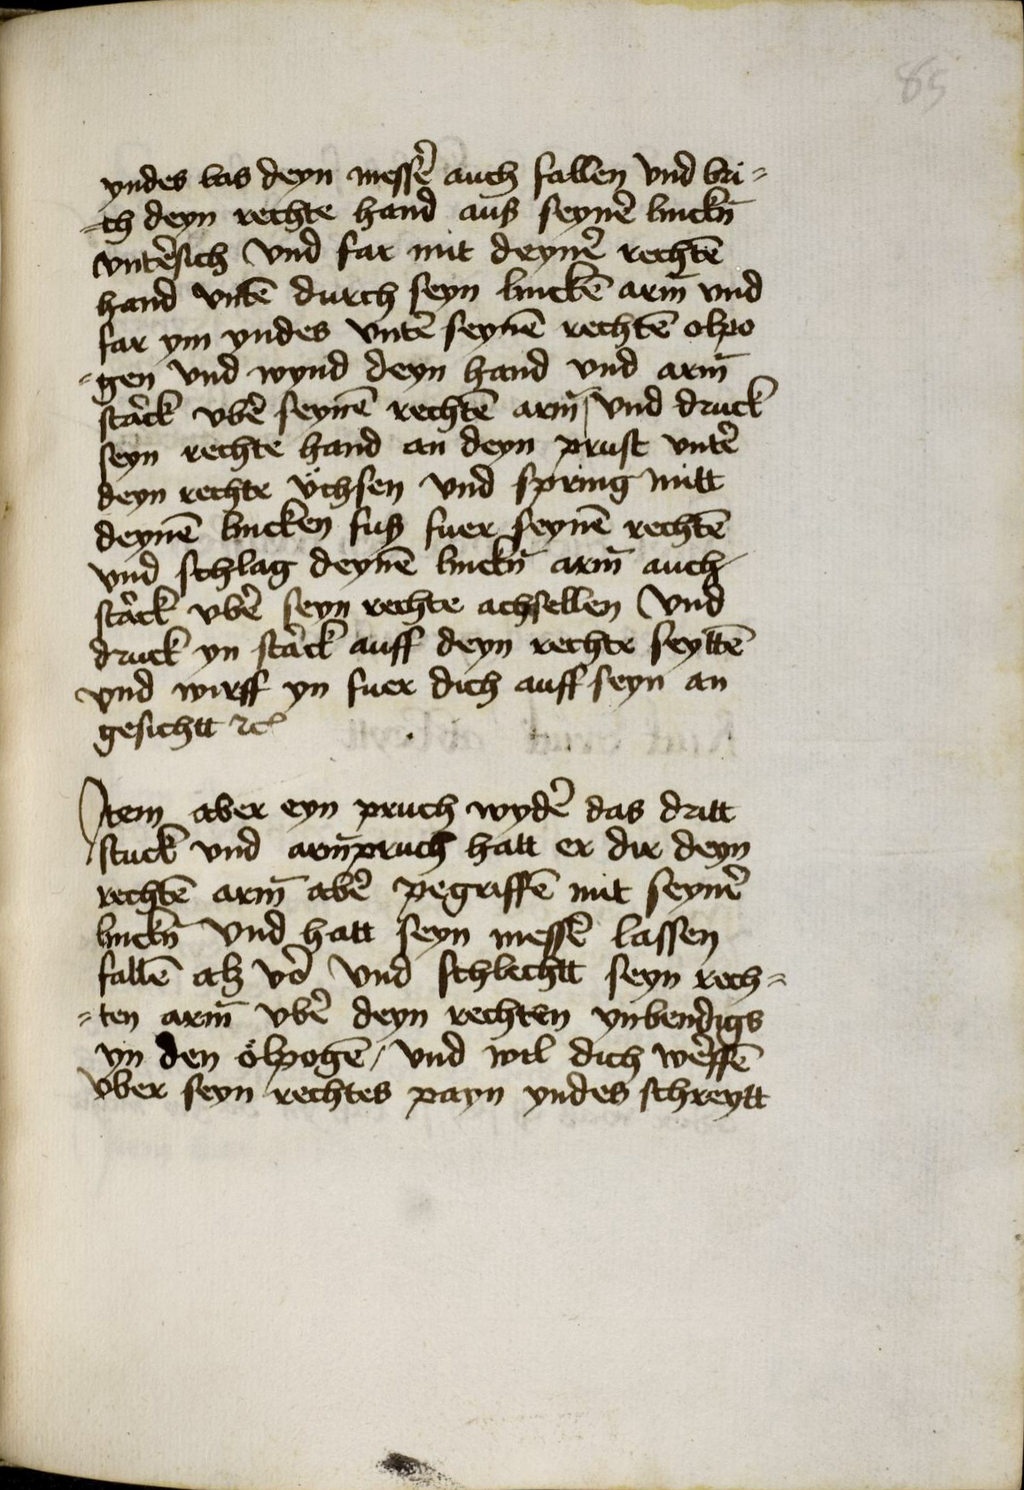 85
yndes las deyn messer̄ auch fallen vnd bri=
=ch deyn rechte hand auß seyner̄ linckn̄
vnter̄sich vnd far mit deyner̄ rechtē
hand vntē durch seyn linckē arm̄ vnd
far ym yndes vnter̄ seynē rechtē olpo
=gen vnd wynd deyn hand vnd arm̄
starck vber̄ seynē rechtē arm̄ / vnd druck
seyn rechte hand an deyn prust vnter̄
deyn rechte v̈chsen vnd spring mitt
deynē lincken fuß fuer seynē rechtē
vnd schlag deynē linckn̄ arm̄ auch
starck vber̄ seyn rechte achsellen vnd
druck yn starck auff deyn rechte seyttē
vnd wirff yn fuer dich auff seyn an
gesichtt ꝛcꝭ
Item aber eyn pruch wyder̄ das dritt
stuck vnd arm̄pruch hatt er dir deyn
rechtē arm̄ aber̄ pegriffē mit seyner̄
linckn̄ vnd hatt seyn messer̄ lassen
fallē alß vor̄ vnd schlechtt seyn rech=
=ten arm̄ vber̄ deyn rechten ynbendigs
yn den ölpogē / vnd wil dich werffē
vber seyn rechtes payn yndes schreytt